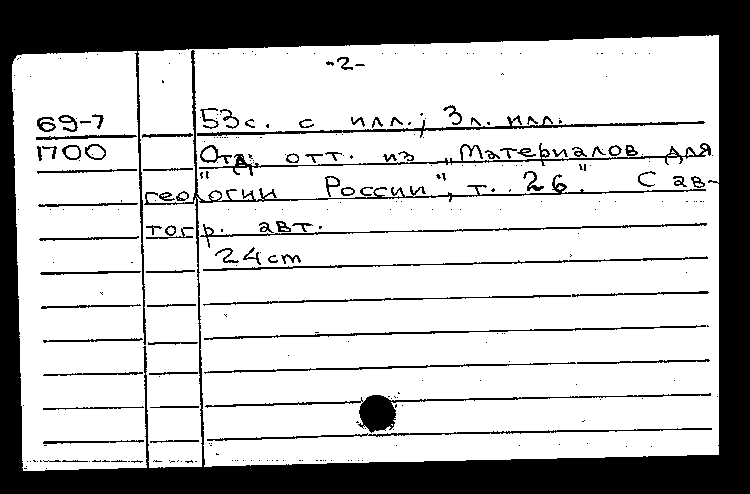 -2-
69-7 53с. с илл.; 3л. илл.
1700 "Отд. отт. из „Материалов для
геологии России", т. 26". С ав-
тогр. авт.
24cm